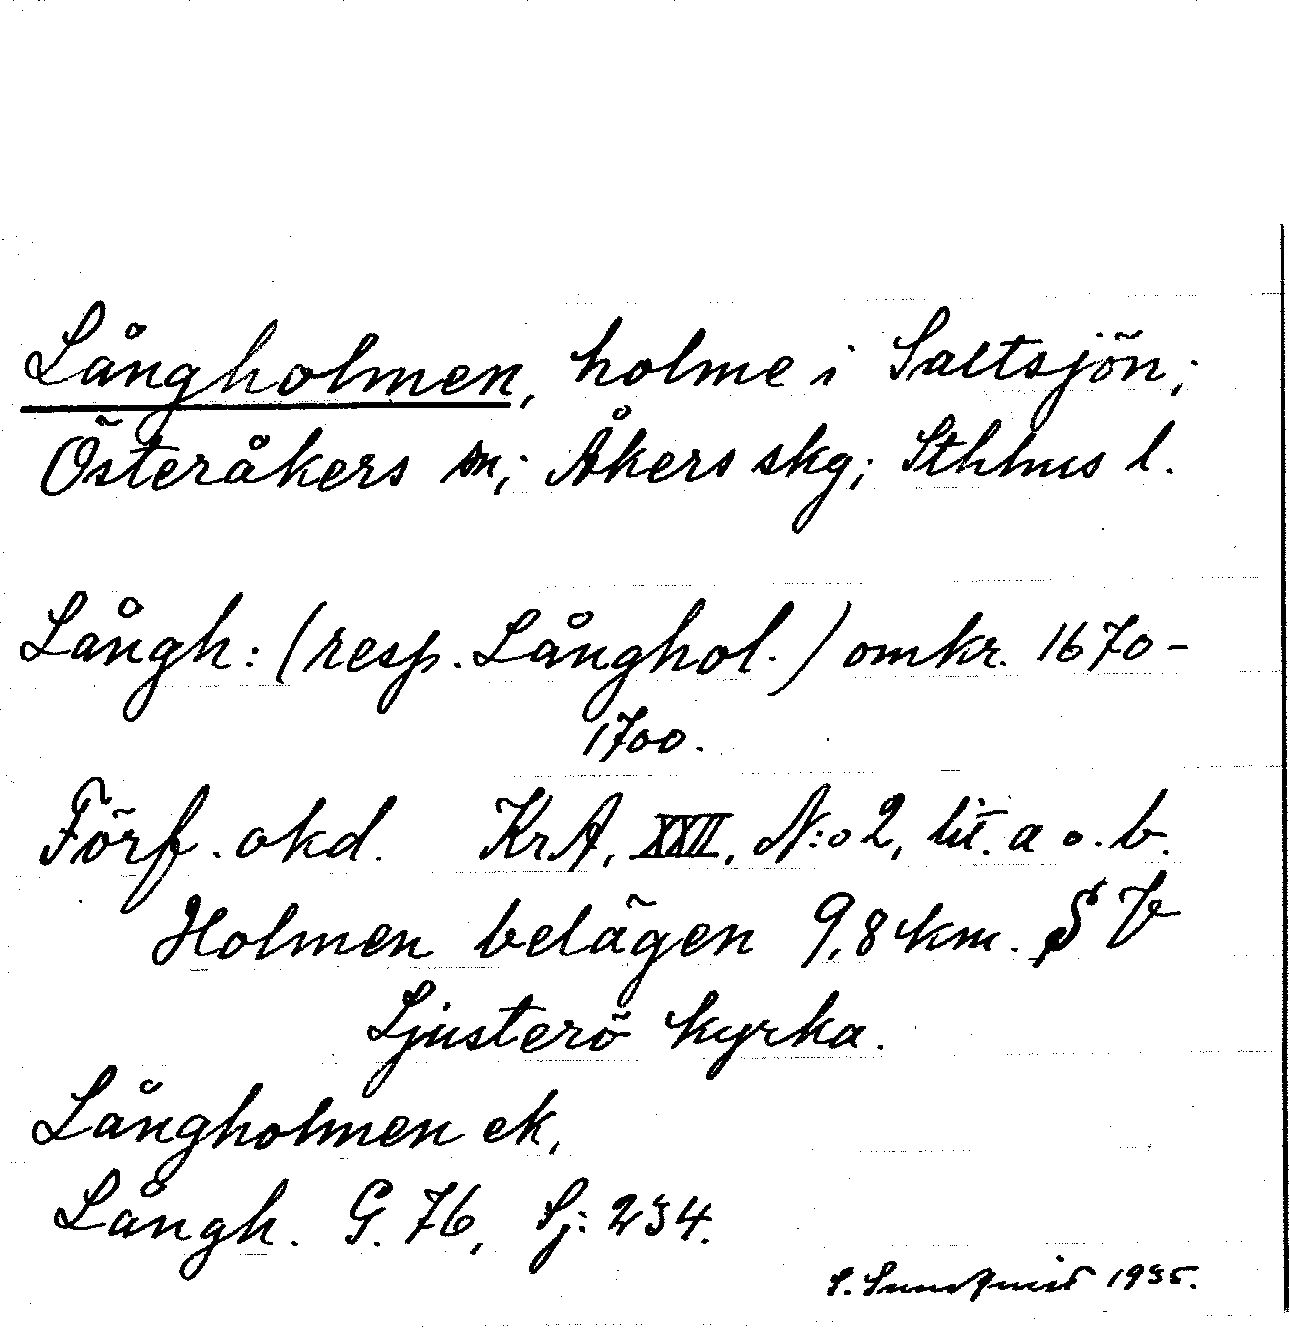 Långholmen, holme i Saltsjön;
Österåkers sn; Åkers skg; Sthlms l.
Långh: (resp. Långhol.) omkr. 1670-
1700.
Förf. okd. KrA, XXII, N:o 2, lit. a o. b.
Holmen belägen 9,8 km. S V
Ljusterö kyrka.
Långholmen ek,
Långh. G. 76, Sj: 234.
S. Sundquist 1935.